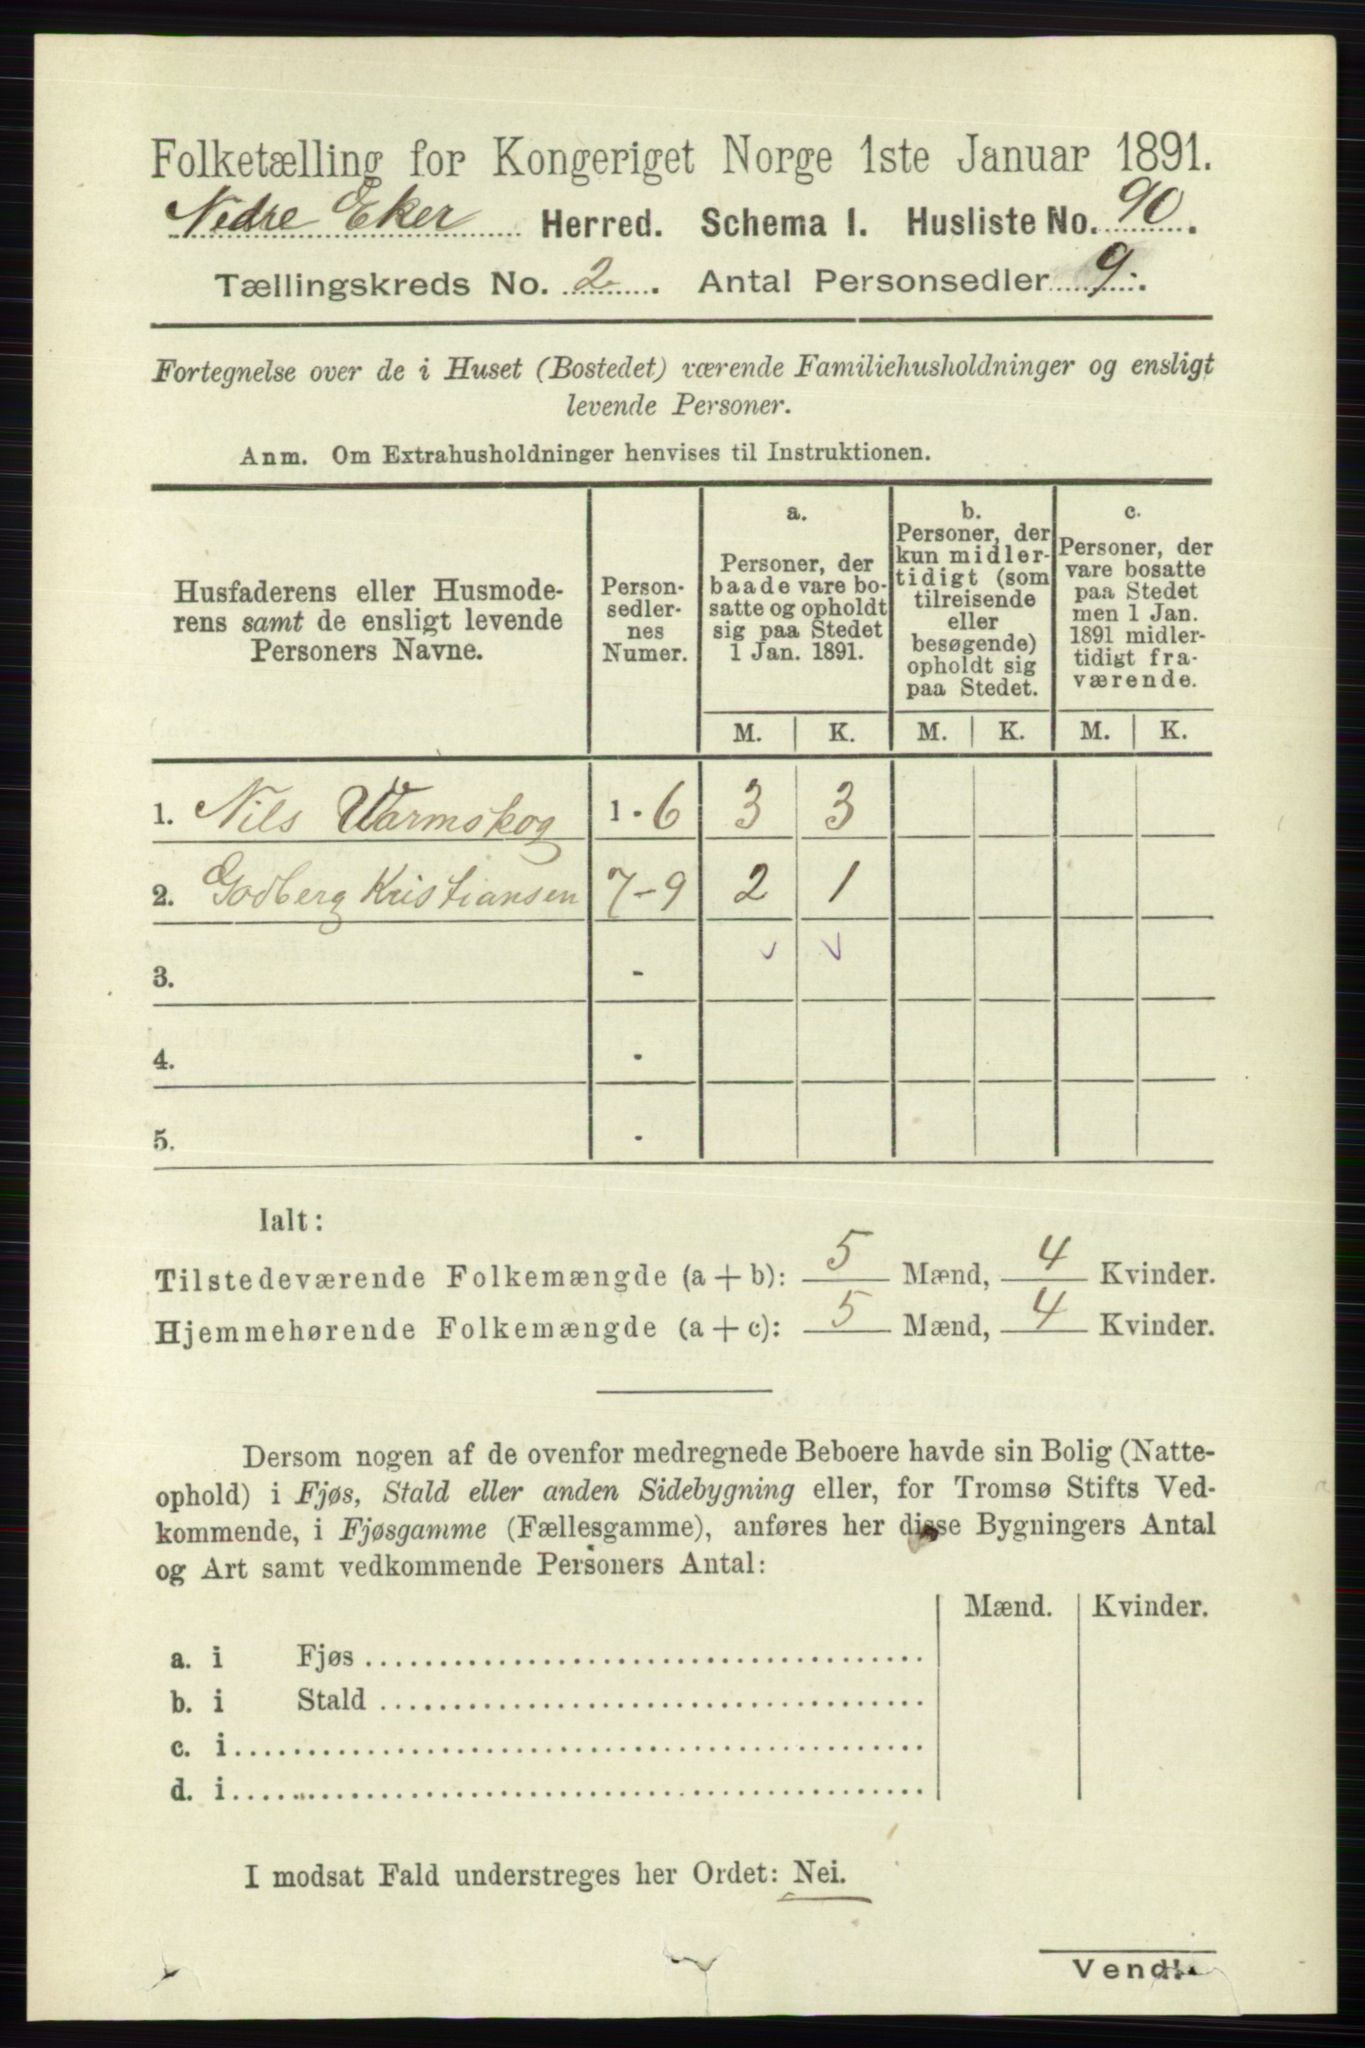 Folketælling for Kongeriget Norge 1ste Januar 1891.
Nedre Eker Herred. Schema I. Husliste No. 90.
Tællingskreds No. 2. Antal Personsedler 9.
Fortegnelse over de i Huset (Bostedet) værende Familiehusholdninger og ensligt
levende Personer.
Anm. Om Extrahusholdninger henvises til Instruktionen.
Husfaderens eller Husmode-
rens samt de ensligt levende
Personers Navne.
Person-
sedler-
nes
Numer.
a.
Personer, der
baade vare bo-
satte og opholdt
sig paa Stedet
1 Jan. 1891.
b.
Personer, der
kun midler-
tidigt (som
tilreisende
eller
besøgende)
opholdt sig
paa Stedet.
c.
Personer, der
vare bosatte
paa Stedet
men 1 Jan.
1891 midler-
tidigt fra-
værende.
M. K. M. K. M. K.
1. Nils Warmskog 1 - 6 3 3
2. Godberg Kristiansen 7-9 2 1
3. -
4. -
5. -
Ialt:
Tilstedeværende Folkemængde (a + b): 5 Mænd, 4 Kvinder.
Hjemmehørende Folkemængde (a + c): 5 Mænd, 4 Kvinder.
Dersom nogen af de ovenfor medregnede Beboere havde sin Bolig (Natte-
ophold) i Fjøs, Stald eller anden Sidebygning eller, for Tromsø Stifts Ved-
kommende, i Fjøsgamme (Fællesgamme), anføres her disse Bygningers Antal
og Art samt vedkommende Personers Antal:
Mænd. Kvinder.
a. i Fjøs
b. i Stald
c. i
d. i
I modsat Fald understreges her Ordet: Nei.
Vend!